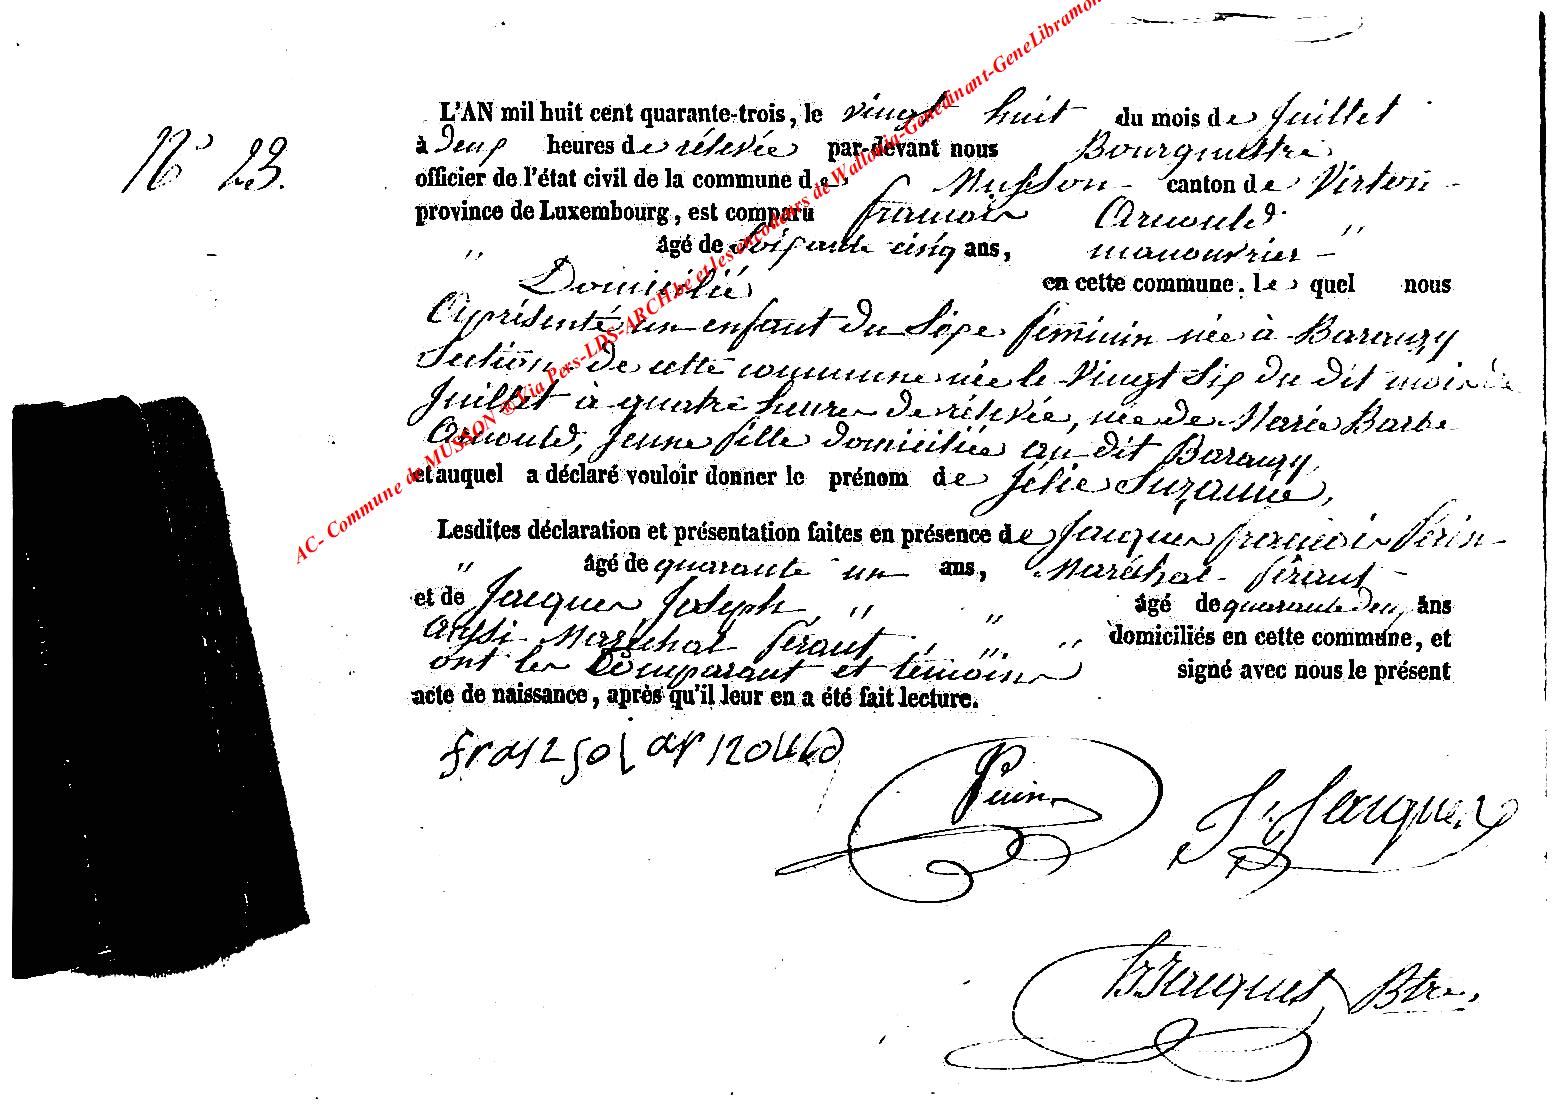 AC- Commune de MUSSON @Via Pers-LDS-ARCH.be et les encodeurs de Wallonia-Genedinant-GeneLibramon
N° 23.
L'AN mil huit cent quarante-trois, le vingt huit du mois de Juillet
à deux heures de rélevée par-devant nous Bourguestre
officier de l'état civil de la commune de Musson canton de Virton
province de Luxembourg, est comparu francois Arnould
" âgé de soixante cinq ans, manouvrier "
Domicilié en cette commune, le quel nous
Aprésenté un enfant du Sexe féminin née à Baranzy
Section de cette commune née le Vingt Six du dit mois de
Juillet à quatre heures de rélevée, née de Marie Barbe
Arnould, jeune fille domiciliée au dit Baranzy,
et auquel a déclaré vouloir donner le prénom de Jélie Suzanne,
Lesdites déclaration et présentation faites en présence de Jacques francois Périn
" âgé de quarante un ans, Maréchal ferant
et de Jacques Joseph " " âgé de quarante deux ans
Aussi Maréchal ferant " " domiciliés en cette commune, et
ont les Comparant et témoins signé avec nous le présent
acte de naissance, après qu'il leur en a été fait lecture.
Périn
J. Jacques
Jacques Btre.